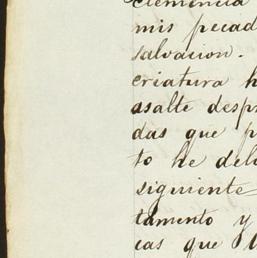 clemencia
mis pecad
salvacion.
criatura h
asalte despr
das que p
to he deli
siguiente
tamento y
cas que